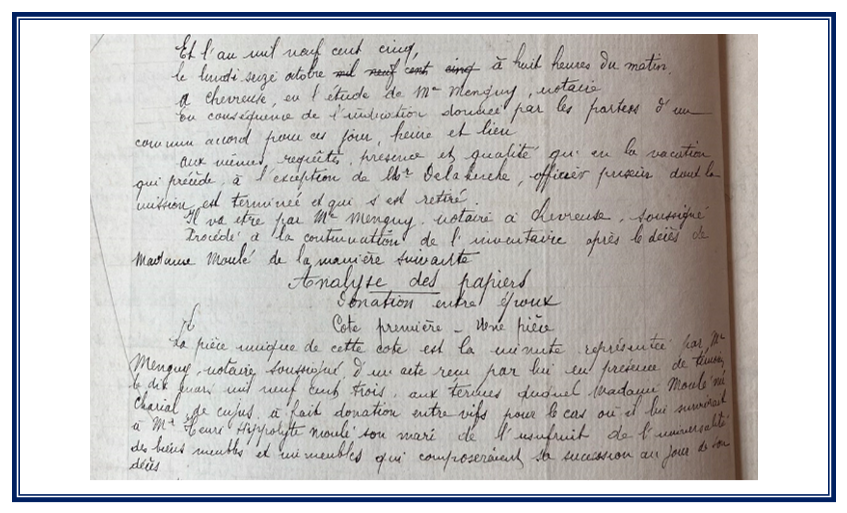 Et l'an mil neuf cent cinq,
le lundi seize octobre mil neuf cent cinq à huit heures du matin,
A chevreuse, en l'étude de Me Menguy, notaire
En conséquence de l'indication donnée par les parties d'un
commun accord pour ces jour, heure et lieu
Aux mêmes, requête, présence et qualité qu'en la vacation
qui précède, à l'exception de Mr Delaherche, officier priseur dont la
mission est terminée et qui s'est retiré.
Il va être par Me Menguy, notaire à Chevreuse, soussigné
Procédé à la continuation de l'inventaire après le décès de
Madame Moulé de la manière suivante
Analyse des papiers
Donation entre époux
Cote première _ Une pièce
La pièce unique de cette cote est la minute représentée par Me
Menguy, notaire soussigné d'un acte reçu par lui en présence de témoins
le dix mars mil neuf cent trois, aux termes duquel Madame Moulé née
Charial de cujus, à fait donation entre vifs pour le cas où il lui survivrait
à Mr Henri Hippolyte Moulé son mari de l'usufruit de l'universalité
des biens meubles et immeubles qui composeraient sa succession au jour de son
décès